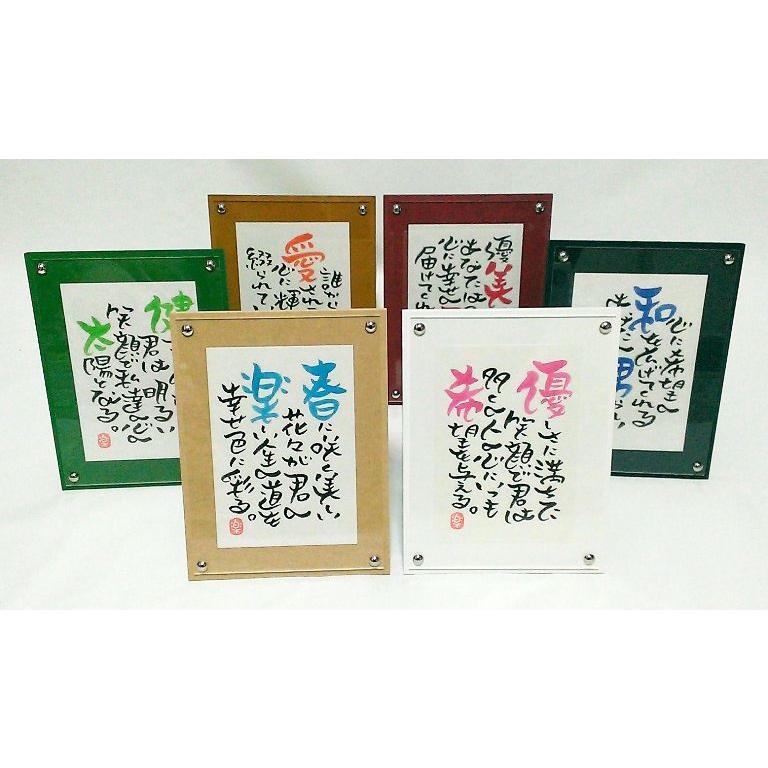 健
君は明るい
笑顔で私達の心の
太陽となる。
愛
心に輝
綴られてい
優美
あなたは
心に幸せ
届けてくれ
和
心に希望の
を広げてくれる
男
春に咲く美しい
花々が君の
楽しい人生の道を
幸せ色に彩る。
優しさに満ちた
笑顔で君は
多くの人の心にいつも
希望を与える。